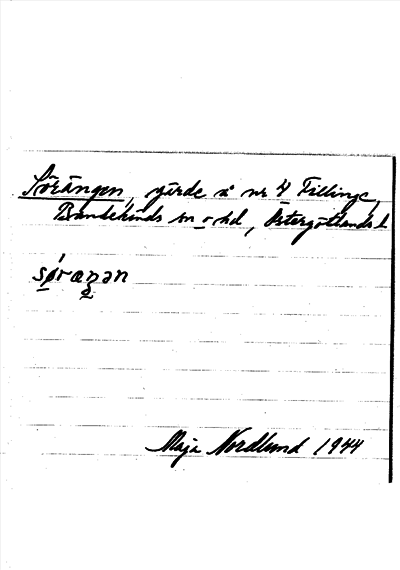 Sörängen, gärde å nr 4 Fillinge,
Bankekinds sn o hd, Östergötlands l
sǿraŋən
Maja Nordlund 1944